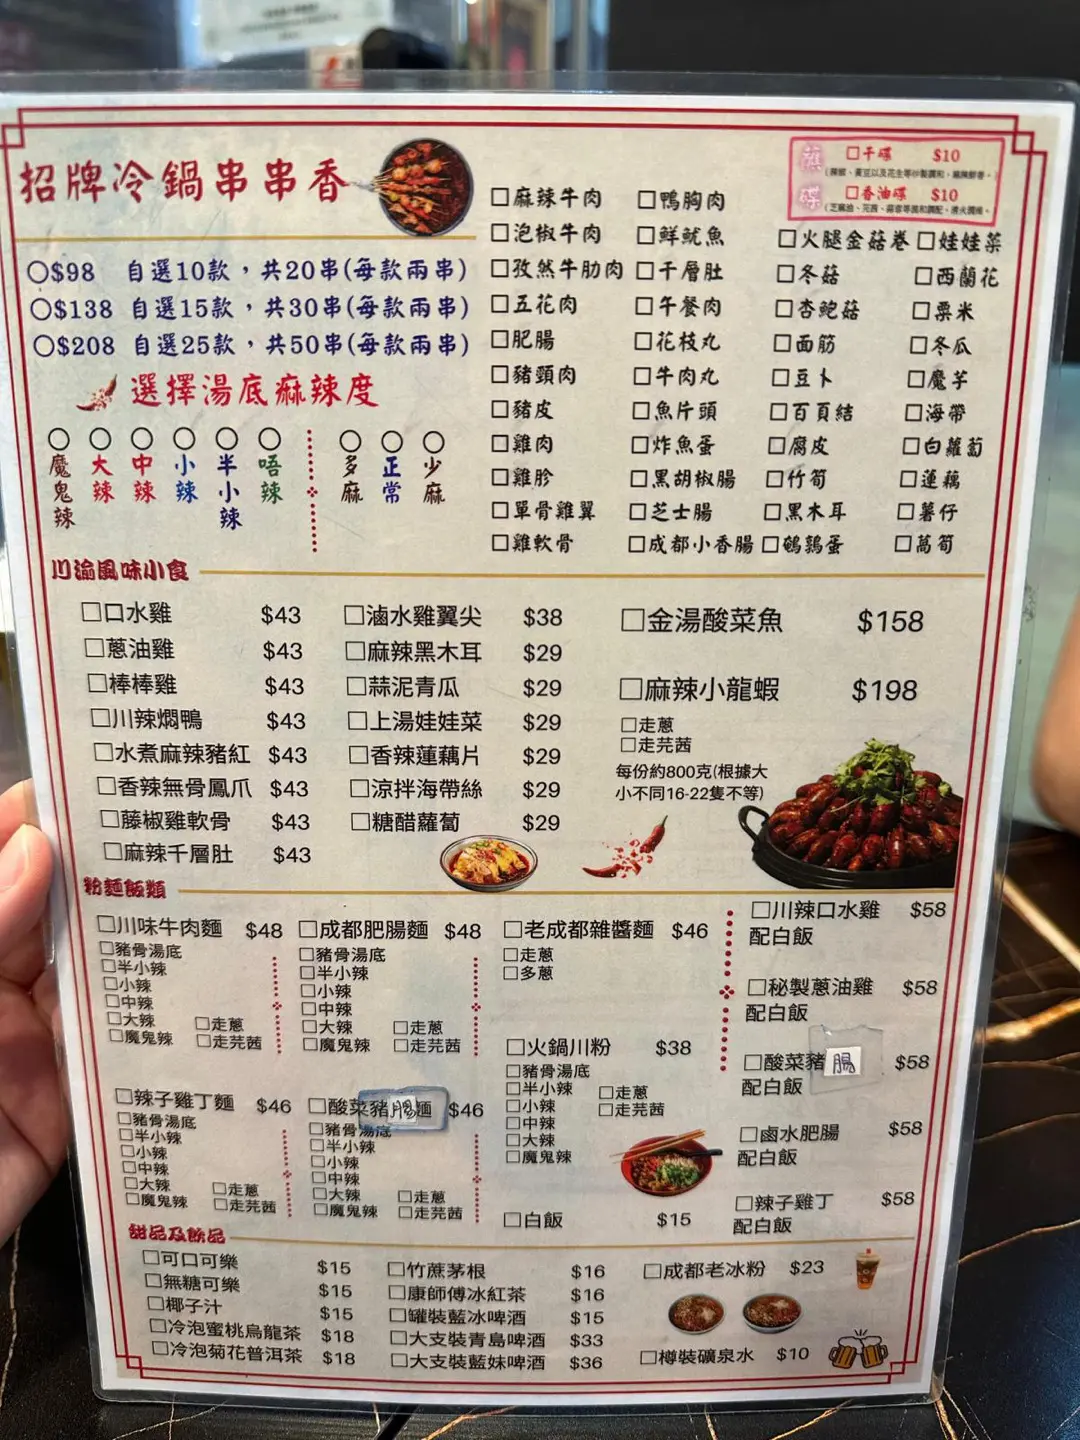 招牌冷鍋串串香
○$98 自選10款，共20串(每款兩串)
○$138 自選15款，共30串(每款兩串)
○$208 自選25款，共50串(每款兩串)
選擇湯底麻辣度
○魔鬼辣 ○大辣 ○中辣 ○小辣 ○半小辣 ○唔辣 ○多麻 ○正常 ○少麻
蘸碟
□干碟 $10
□香油碟 $10
□麻辣牛肉 □鴨胸肉
□泡椒牛肉 □鮮魷魚 □火腿金菇卷 □娃娃菜
□孜然牛肋肉 □千層肚 □冬菇 □西蘭花
□五花肉 □午餐肉 □杏鮑菇 □粟米
□肥腸 □花枝丸 □面筋 □冬瓜
□豬頸肉 □牛肉丸 □豆卜 □魔芋
□豬皮 □魚片頭 □百頁結 □海帶
□雞肉 □炸魚蛋 □腐皮 □白蘿蔔
□雞胗 □黑胡椒腸 □竹筍 □蓮藕
□單骨雞翼 □芝士腸 □黑木耳 □薯仔
□雞軟骨 □成都小香腸 □鵪鶉蛋 □萵筍
川渝風味小食
□口水雞 $43
□蔥油雞 $43
□棒棒雞 $43
□川辣燜鴨 $43
□水煮麻辣豬紅 $43
□香辣無骨鳳爪 $43
□藤椒雞軟骨 $43
□麻辣千層肚 $43
□滷水雞翼尖 $38
□麻辣黑木耳 $29
□蒜泥青瓜 $29
□上湯娃娃菜 $29
□香辣蓮藕片 $29
□涼拌海帶絲 $29
□糖醋蘿蔔 $29
□金湯酸菜魚 $158
□麻辣小龍蝦 $198
□走蔥
□走芫茜
每份約800克(根據大
小不同16-22隻不等)
粉麵飯類
□川味牛肉麵 $48
□豬骨湯底
□半小辣
□小辣
□中辣
□大辣 □走蔥
□魔鬼辣 □走芫茜
□成都肥腸麵 $48
□豬骨湯底
□半小辣
□小辣
□中辣
□大辣 □走蔥
□魔鬼辣 □走芫茜
□老成都雜醬麵 $46
□走蔥
□多蔥
□辣子雞丁麵 $46
□豬骨湯底
□半小辣
□小辣
□中辣
□大辣 □走蔥
□魔鬼辣 □走芫茜
□酸菜豬腸麵 $46
□豬骨湯底
□半小辣
□小辣
□中辣
□大辣 □走蔥
□魔鬼辣 □走芫茜
□火鍋川粉 $38
□豬骨湯底
□半小辣 □走蔥
□小辣 □走芫茜
□中辣
□大辣
□魔鬼辣
□白飯 $15
□川辣口水雞 $58
配白飯
□秘製蔥油雞 $58
配白飯
□酸菜豬腸 $58
配白飯
□鹵水肥腸 $58
配白飯
□辣子雞丁 $58
配白飯
甜品及飲品
□可口可樂 $15
□無糖可樂 $15
□椰子汁 $15
□冷泡蜜桃烏龍茶 $18
□冷泡菊花普洱茶 $18
□竹蔗茅根 $16
□康師傅冰紅茶 $16
□罐裝藍冰啤酒 $15
□大支裝青島啤酒 $33
□大支裝藍妹啤酒 $36
□成都老冰粉 $23
□樽裝礦泉水 $10